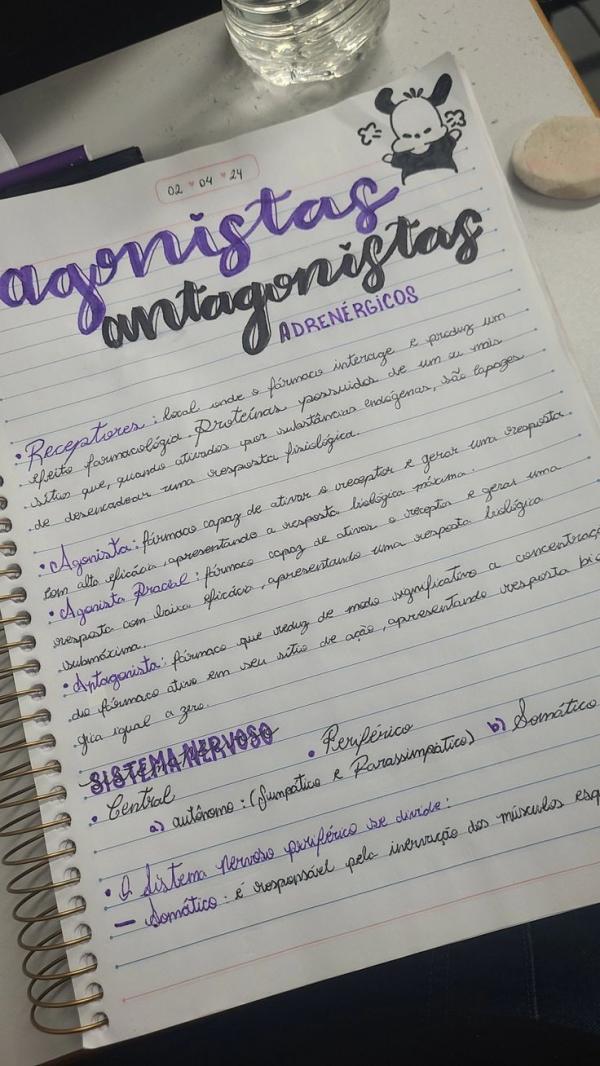 02 ♥ 04 ♥ 24
agonistas
antagonistas
ADRENÉRGICOS
• Receptores: local onde o fármaco interage e produz um
efeito farmacológia. Proteínas possuidos de um ou mais
sítios que, quando ativados por substâncias endógenas, são capazes
de desencadear uma resposta fisiológica.
• Agonista: fármaco capaz de ativar o receptor e gerar uma resposta
com alta eficácia, apresentando a resposta biológica máxima.
• Agonista Parcial: fármaco capaz de ativar o receptor e gerar uma
resposta com baixa eficácia, apresentando uma resposta biológica
submáxima.
• Antagonista: fármaco que reduz de modo significativo a concentraç
do fármaco ativo em seu sítio de ação, apresentando resposta bio
gica igual a zero.
SISTEMA NERVOSO
• Central • Periférico
a) autônomo: (Simpático e Parassimpático) b) Somático
• O Sistema nervoso periférico se divide:
— Somático: é responsável pela inervação dos músculos esq